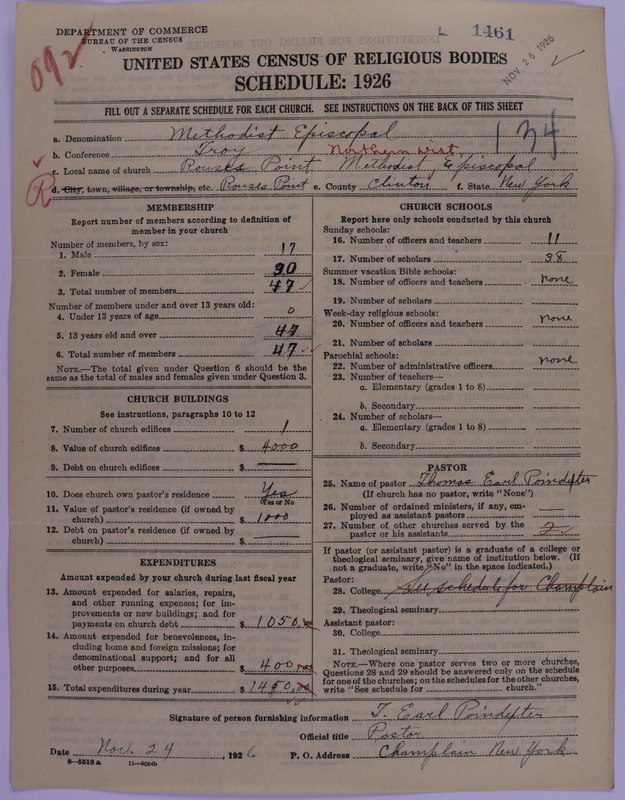 DEPARTMENT OF COMMERCE
BUREAU OF THE CENSUS
WASHINGTON
092
L 1461
NOV 26 1926
UNITED STATES CENSUS OF RELIGIOUS BODIES
SCHEDULE: 1926
FILL OUT A SEPARATE SCHEDULE FOR EACH CHURCH. SEE INSTRUCTIONS ON THE BACK OF THIS SHEET
134
a. Denomination Methodist Episcopal
b. Conference Troy Northern Dist.
c. Local name of church Rouses Point Methodist Episcopal
R
d. City, town, village, or township, etc. Rouses Point e. County Clinton f. State New York
MEMBERSHIP
Report number of members according to definition of member in your church
Number of members, by sex:
1. Male 17
2. Female 30
3. Total number of members 47
Number of members under and over 13 years old:
4. Under 13 years of age 0
5. 13 years old and over 47
6. Total number of members 47
NOTE.—The total given under Question 6 should be the same as the total of males and females given under Question 3.
CHURCH BUILDINGS
See instructions, paragraphs 10 to 12
7. Number of church edifices 1
8. Value of church edifices $ 4000
9. Debt on church edifices $ —
10. Does church own pastor's residence Yes
Yes or No
11. Value of pastor's residence (if owned by church) $ 1000
12. Debt on pastor's residence (if owned by church) $ —
EXPENDITURES
Amount expended by your church during last fiscal year
13. Amount expended for salaries, repairs, and other running expenses; for improvements or new buildings; and for payments on church debt $ 1050.
14. Amount expended for benevolences, including home and foreign missions; for denominational support; and for all other purposes $ 400
15. Total expenditures during year $ 1450.
CHURCH SCHOOLS
Report here only schools conducted by this church
Sunday schools:
16. Number of officers and teachers 11
17. Number of scholars 38
Summer vacation Bible schools:
18. Number of officers and teachers none
19. Number of scholars
Week-day religious schools:
20. Number of officers and teachers none
21. Number of scholars
Parochial schools:
22. Number of administrative officers none
23. Number of teachers—
a. Elementary (grades 1 to 8)
b. Secondary
24. Number of scholars—
a. Elementary (grades 1 to 8)
b. Secondary
PASTOR
25. Name of pastor Thomas Earl Poindexter
(If church has no pastor, write "None")
26. Number of ordained ministers, if any, employed as assistant pastors —
27. Number of other churches served by the pastor or his assistants 2
If pastor (or assistant pastor) is a graduate of a college or theological seminary, give name of institution below. (If not a graduate, write "No" in the space indicated.)
Pastor:
28. College See schedule for Champlain
29. Theological seminary
Assistant pastor:
30. College
31. Theological seminary
NOTE.—Where one pastor serves two or more churches, Questions 28 and 29 should be answered only on the schedule for one of the churches; on the schedules for the other churches, write "See schedule for church."
Signature of person furnishing information T. Earl Poindexter
Official title Pastor
Date Nov. 24, 1926 P. O. Address Champlain New York
6—5518 a 11—9064b